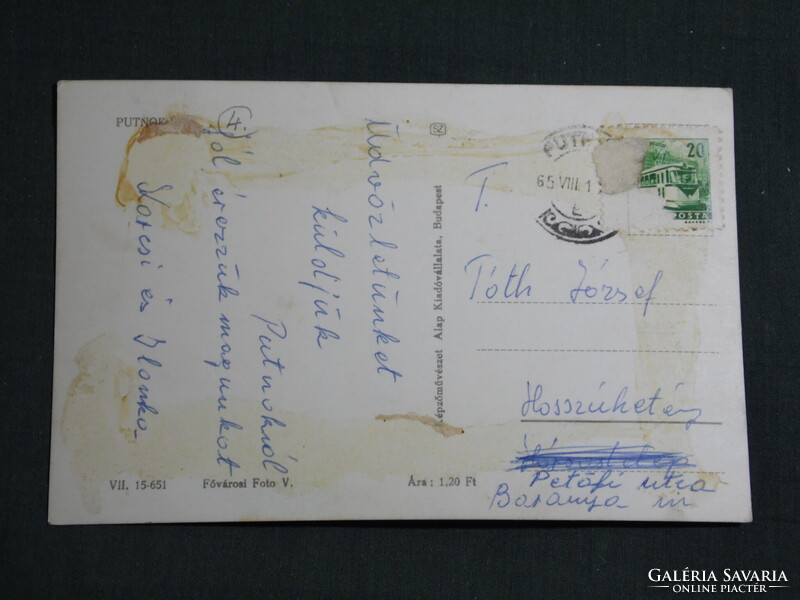 PUTNOK
4
Üdvözletünket
küldjük
Putnokról
Jól érezzük magunkat
Karcsi és Ilonka
VII. 15-651
Fővárosi Foto V.
Ára : 1,20 Ft
Képzőművészet Alap Kiadóvállalata, Budapest
PUTN
65 VIII. 1
20
POSTA
T.
Tóth József
Hosszúhetény
Petőfi utca
Baranya m
GALÉRIA SAVARIA
ONLINE PIACTÉR